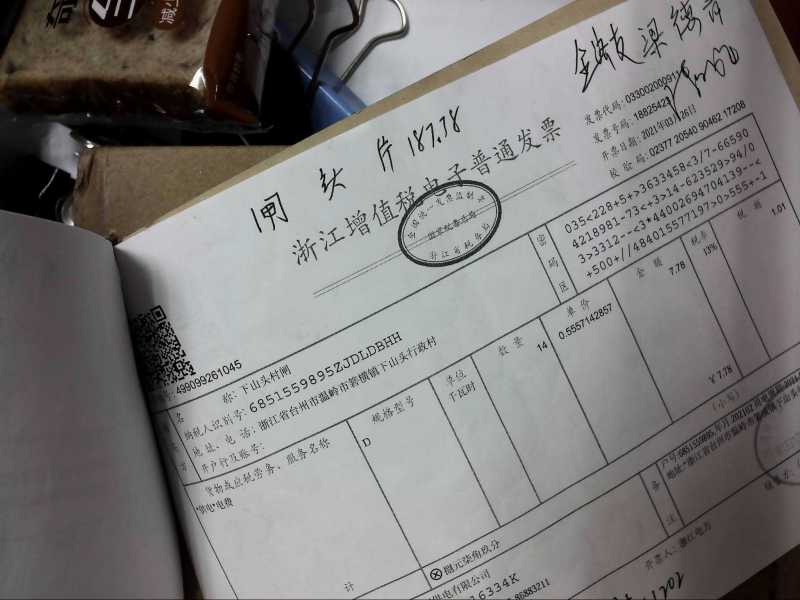 闸 头 片 187.78
浙江增值税电子普通发票
发票代码: 0330020009
发票号码: 1882542
开票日期: 2021年03月26日
校 验 码: 02377 20540 90462 17208
全国统一发票监制章
国家税务总局
浙江省税务局
密码区
035<228+5+>3633458<3/7-66590
4218981-73<+3>14-623529>94/0
3>3312--<3*44002694704139--<
+500+//484015577197>0>555+-1
499099261045
名 称: 下山头村闸
纳税人识别号: 6851559895ZJDLDBHH
地 址、电 话: 浙江省台州市温岭市箬横镇下山头行政村
开户行及账号:
货物或应税劳务、服务名称
规格型号
单位
数 量
单 价
金 额
税率
税 额
*供电*电费
D
千瓦时
14
0.5557142857
7.78
13%
1.01
¥ 7.78
计
捌元柒角玖分
(小写)
备
注
户号:6851559895,
地址:浙江省台州市温岭市箬横镇下山头
供电有限公司
16334K
86883211
开票人: 浙江电力